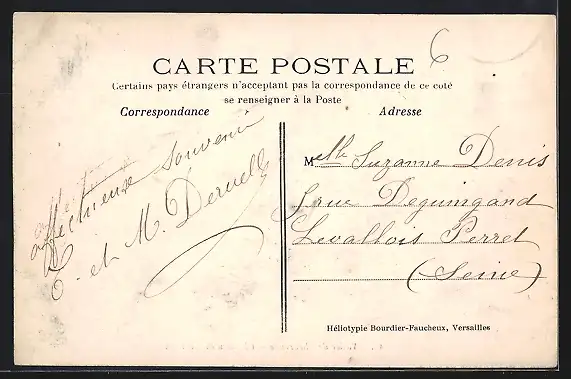 6
CARTE POSTALE
Certains pays étrangers n'acceptent pas la correspondance de ce coté
se renseigner à la Poste
Correspondance
Affectueux souvenir
et M. Dervelle
Adresse
Melle Suzanne Denis
rue Deguingand
Levallois Perret
(Seine)
Héliotypie Bourdier-Faucheux, Versailles